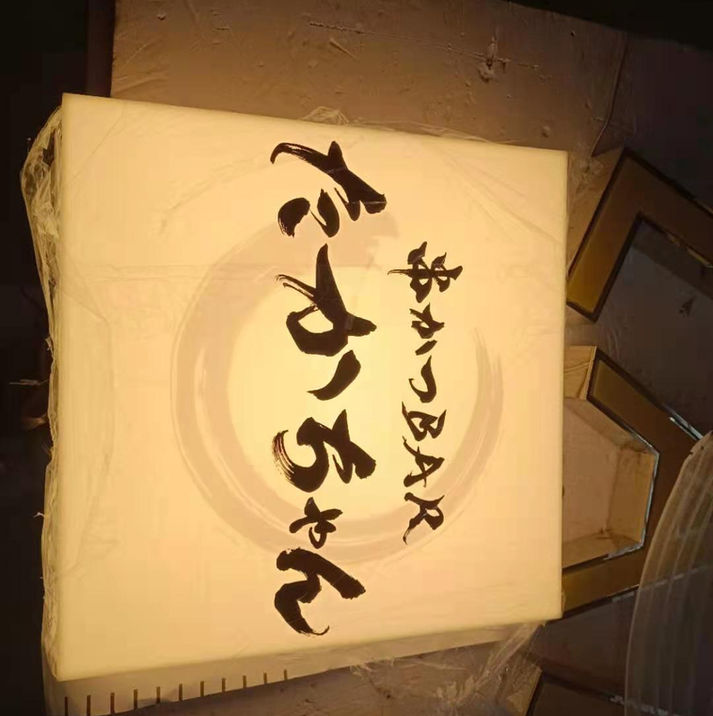 串かつBAR
たかちゃん